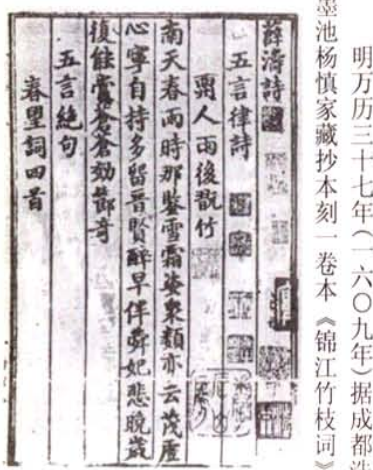 明万历三十七年(一六〇九年)据成都洗
墨池杨慎家藏抄本刻一卷本《锦江竹枝词》
薛濤詩
五言律詩
酬人雨後翫竹
南天春雨時那鑒雪霜姿衆類亦云茂虛
心寧自持多留晉賢醉早伴舜妃悲晚歲
復能賞蒼蒼勁節奇
五言絕句
春望詞四首